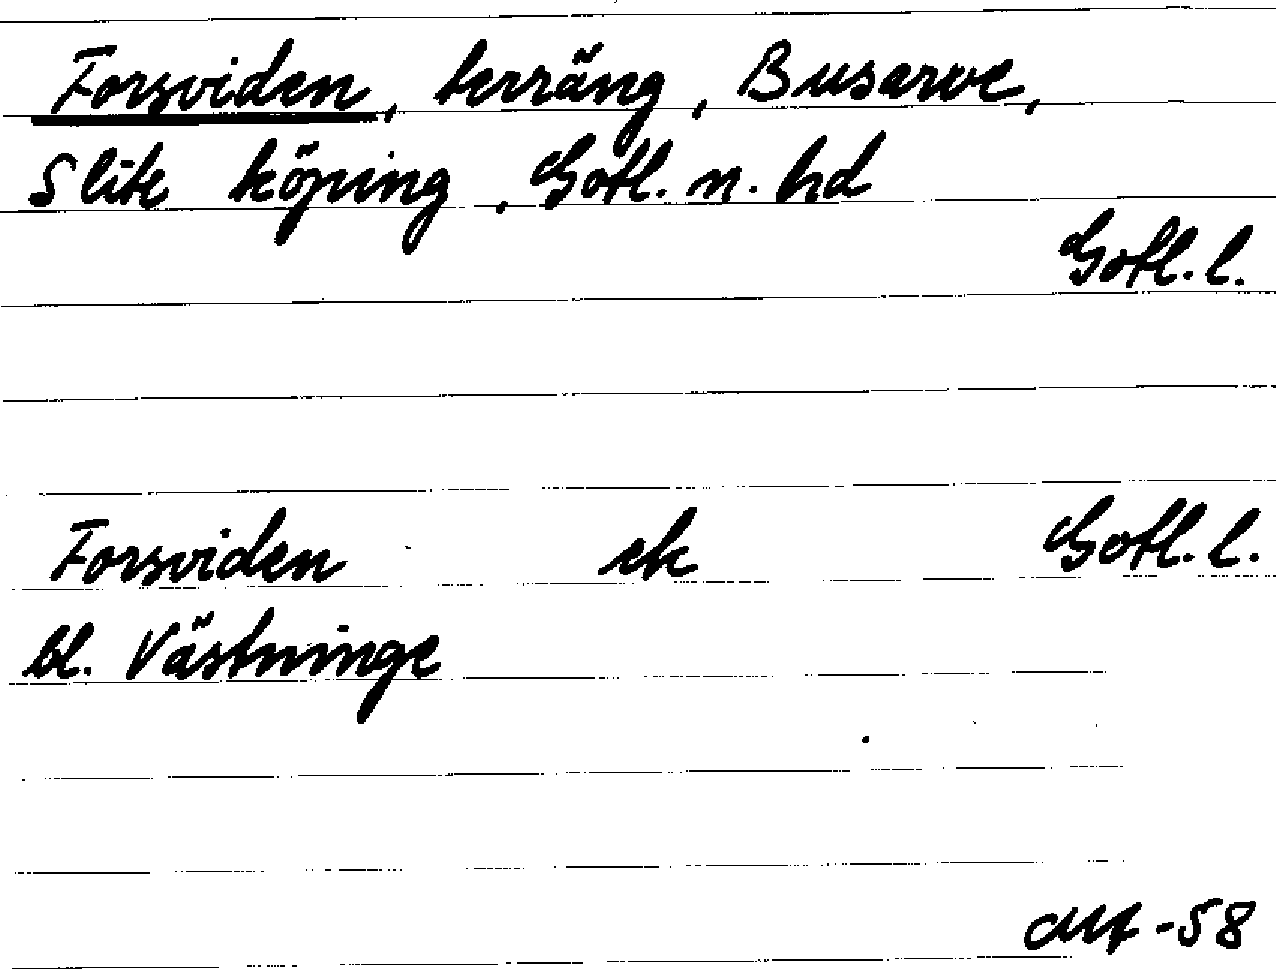 Forsviden, terräng, Busarve,
Slite köping, Gotl. n. hd
Gotl. l.
Forsviden ek Gotl. l.
bl. Västninge
-58